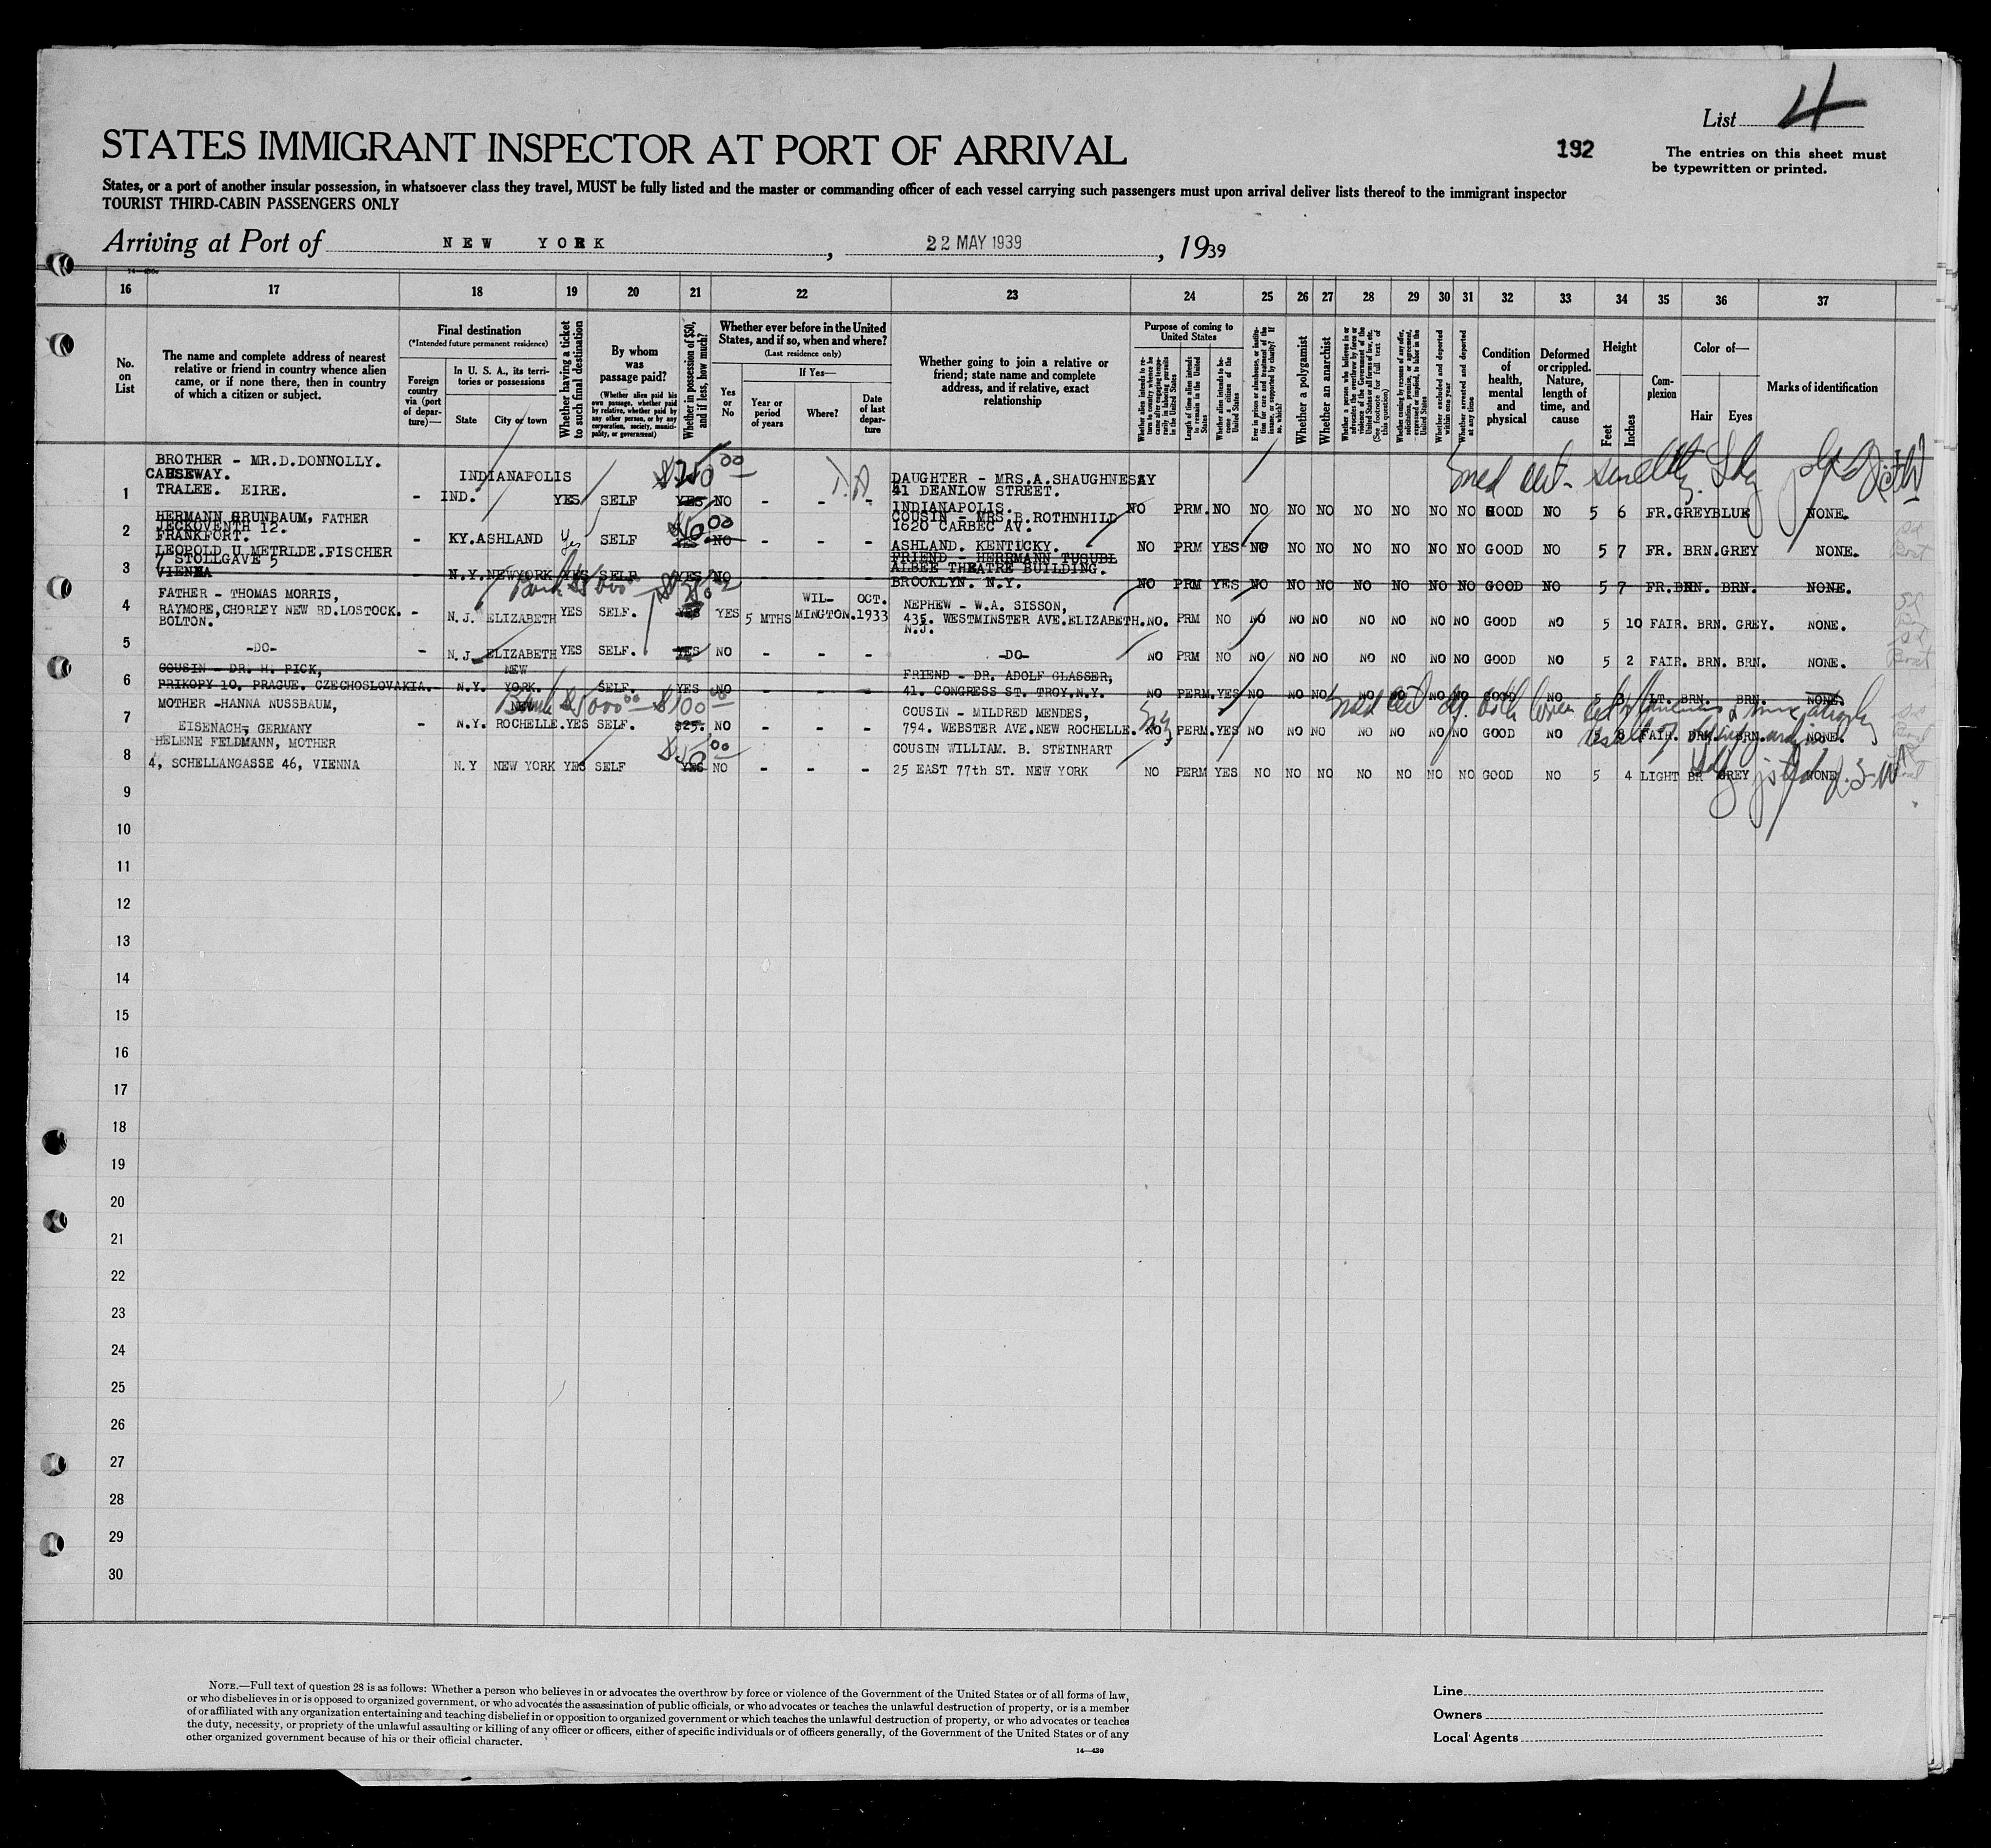 List 4
STATES IMMIGRANT INSPECTOR AT PORT OF ARRIVAL
192
The entries on this sheet must
be typewritten or printed.
States, or a port of another insular possession, in whatsoever class they travel, MUST be fully listed and the master or commanding officer of each vessel carrying such passengers must upon arrival deliver lists thereof to the immigrant inspector
TOURIST THIRD-CABIN PASSENGERS ONLY
Arriving at Port of NEW YORK, 22 MAY 1939, 1939
16 17 18 19 20 21 22 23 24 25 26 27 28 29 30 31 32 33 34 35 36 37
No. on List
The name and complete address of nearest relative or friend in country whence alien came, or if none there, then in country of which a citizen or subject.
Final destination
(*Intended future permanent residence)
Foreign country via (port of departure)—
In U. S. A., its territories or possessions
State
City or town
Whether having a ticket to such final destination
By whom was passage paid?
(Whether alien paid his own passage, whether paid by relative, whether paid by any other person, or by any corporation, society, municipality, or government)
Whether in possession of $50, and if less, how much?
Whether ever before in the United States, and if so, when and where?
(Last residence only)
Yes or No
If Yes—
Year or period of years
Where?
Date of last departure
Whether going to join a relative or friend; state name and complete address, and if relative, exact relationship
Purpose of coming to United States
Length of time alien intends to remain in the United States
Whether alien intends to become a citizen of the United States
Whether a polygamist
Whether an anarchist
Whether excluded and deported within one year
Whether arrested and deported at any time
Condition of health, mental and physical
Deformed or crippled. Nature, length of time, and cause
Height
Feet
Inches
Complexion
Color of—
Hair
Eyes
Marks of identification
BROTHER - MR.D.DONNOLLY.
CAUSEWAY.
1 TRALEE. EIRE. - IND. INDIANAPOLIS YES SELF $250 00 YES NO - - - DAUGHTER - MRS.A.SHAUGHNESSY
41 DEANLOW STREET.
INDIANAPOLIS. NO PRM. NO NO NO NO NO NO NO NO GOOD NO 5 6 FR. GREY BLUE NONE.
HERMANN GRUNBAUM, FATHER
2 JECKOVENTH 12.
FRANKFORT. - KY. ASHLAND Yes SELF YES NO - - - COUSIN - MRS.B.ROTHNHILD
1620 CARBEC AV.
ASHLAND. KENTUCKY. NO PRM YES NO NO NO NO NO NO NO GOOD NO 5 7 FR. BRN. GREY NONE.
LEOPOLD U METRLDE.FISCHER
3 7 STOLLGAVE 5
VIENNA - N.Y. NEWYORK YES SELF YES NO - - - FRIEND - HERRMANN TUSUBL
ALBEE THEATRE BUILDING.
BROOKLYN. N.Y. NO PRM YES NO NO NO NO NO NO NO GOOD NO 5 7 FR. BRN. BRN. NONE.
FATHER - THOMAS MORRIS,
4 RAYMORE, CHORLEY NEW RD.LOSTOCK.
BOLTON. - N.J. ELIZABETH YES SELF. YES YES 5 MTHS WILMINGTON. OCT. 1933 NEPHEW - W.A. SISSON,
435. WESTMINSTER AVE.ELIZABETH.
N.J. NO. PRM NO NO NO NO NO NO NO NO GOOD NO 5 10 FAIR. BRN. GREY. NONE.
5 -DO- - N.J. ELIZABETH YES SELF. YES NO - - - -DO- NO PRM NO NO NO NO NO NO NO NO GOOD NO 5 2 FAIR. BRN. BRN. NONE.
COUSIN - DR. H. PICK,
6 PRIKOPY 10. PRAGUE. CZECHOSLOVAKIA. - N.Y. NEW YORK. SELF. YES NO - - - FRIEND - DR. ADOLF GLASSER,
41. CONGRESS ST. TROY.N.Y. NO PERM. YES NO NO NO NO NO NO NO GOOD NO 5 LT. BRN. BRN. NONE.
MOTHER -HANNA NUSSBAUM,
7 EISENACH, GERMANY - N.Y. NEW ROCHELLE. YES SELF. $25. $100 00 NO - - - COUSIN - MILDRED MENDES,
794. WEBSTER AVE.NEW ROCHELLE. NO PERM. YES NO NO NO NO NO NO NO GOOD NO 5 8 FAIR. DRK. BRN. NONE.
HELENE FELDMANN, MOTHER
8 4, SCHELLANGASSE 46, VIENNA N.Y NEW YORK YES SELF YES NO - - - COUSIN WILLIAM. B. STEINHART
25 EAST 77th ST. NEW YORK NO PERM YES NO NO NO NO NO NO NO GOOD NO 5 4 LIGHT BR GREY NONE
9
10
11
12
13
14
15
16
17
18
19
20
21
22
23
24
25
26
27
28
29
30
NOTE.—Full text of question 28 is as follows: Whether a person who believes in or advocates the overthrow by force or violence of the Government of the United States or of all forms of law,
or who disbelieves in or is opposed to organized government, or who advocates the assassination of public officials, or who advocates or teaches the unlawful destruction of property, or is a member
of or affiliated with any organization entertaining and teaching disbelief in or opposition to organized government or which teaches the unlawful destruction of property, or who advocates or teaches
the duty, necessity, or propriety of the unlawful assaulting or killing of any officer or officers, either of specific individuals or of officers generally, of the Government of the United States or of any
other organized government because of his or their official character.
14—430
Line
Owners
Local Agents